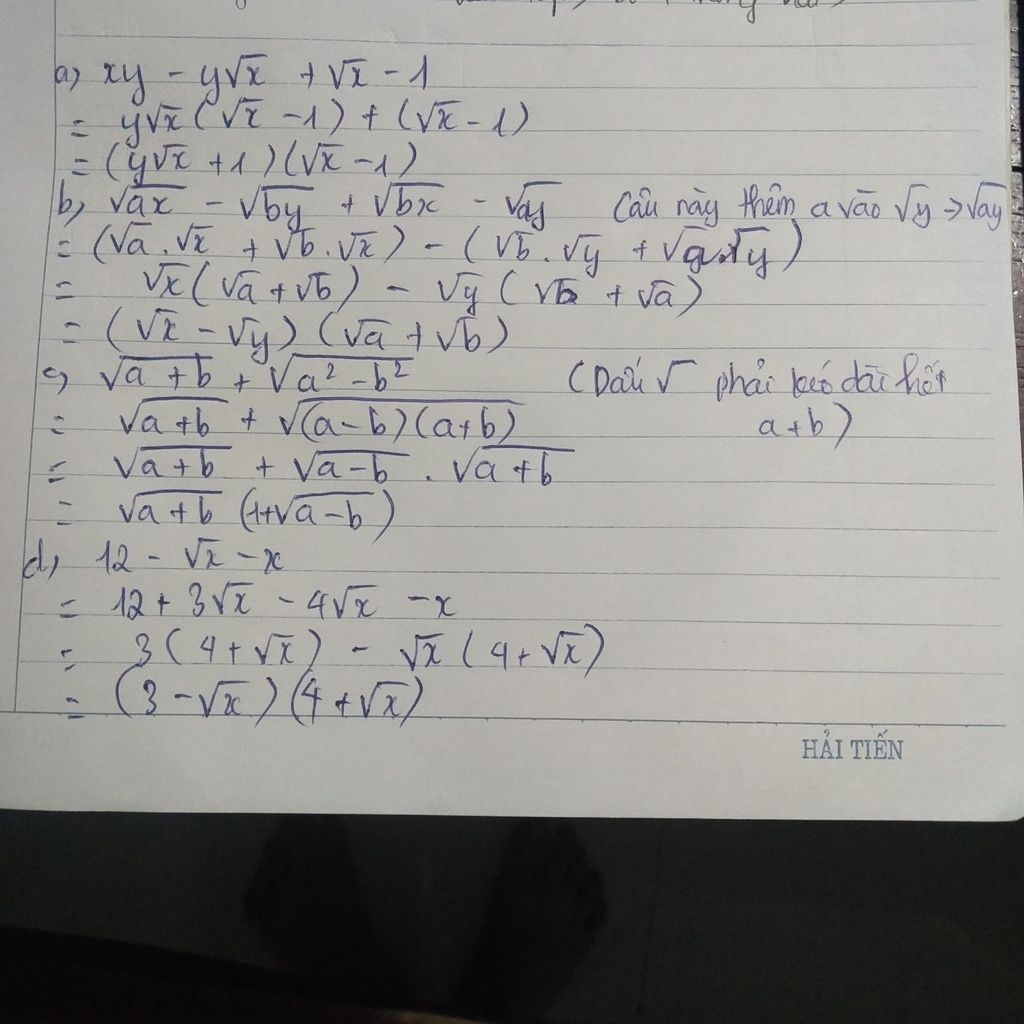 a) xy - y√x + √x - 1
= y√x (√x - 1) + (√x - 1)
= (y√x + 1)(√x - 1)
b) √ax - √by + √bx - √ay Câu này thêm a vào √y → √ay
= (√a . √x + √b . √x) - (√b . √y + √a . √y)
= √x (√a + √b) - √y (√b + √a)
= (√x - √y) (√a + √b)
c) √(a + b) + √(a² - b²) (Dấu √ phải kéo dài hết
= √(a + b) + √((a - b)(a + b)) a + b)
= √(a + b) + √(a - b) . √(a + b)
= √(a + b) (1 + √(a - b))
d) 12 - √x - x
= 12 + 3√x - 4√x - x
= 3 (4 + √x) - √x (4 + √x)
= (3 - √x) (4 + √x)
HẢI TIẾN